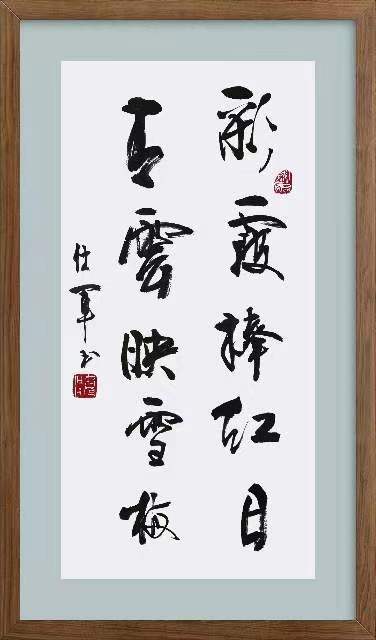 彩霞捧红日
青雲映雪梅
仕軍书